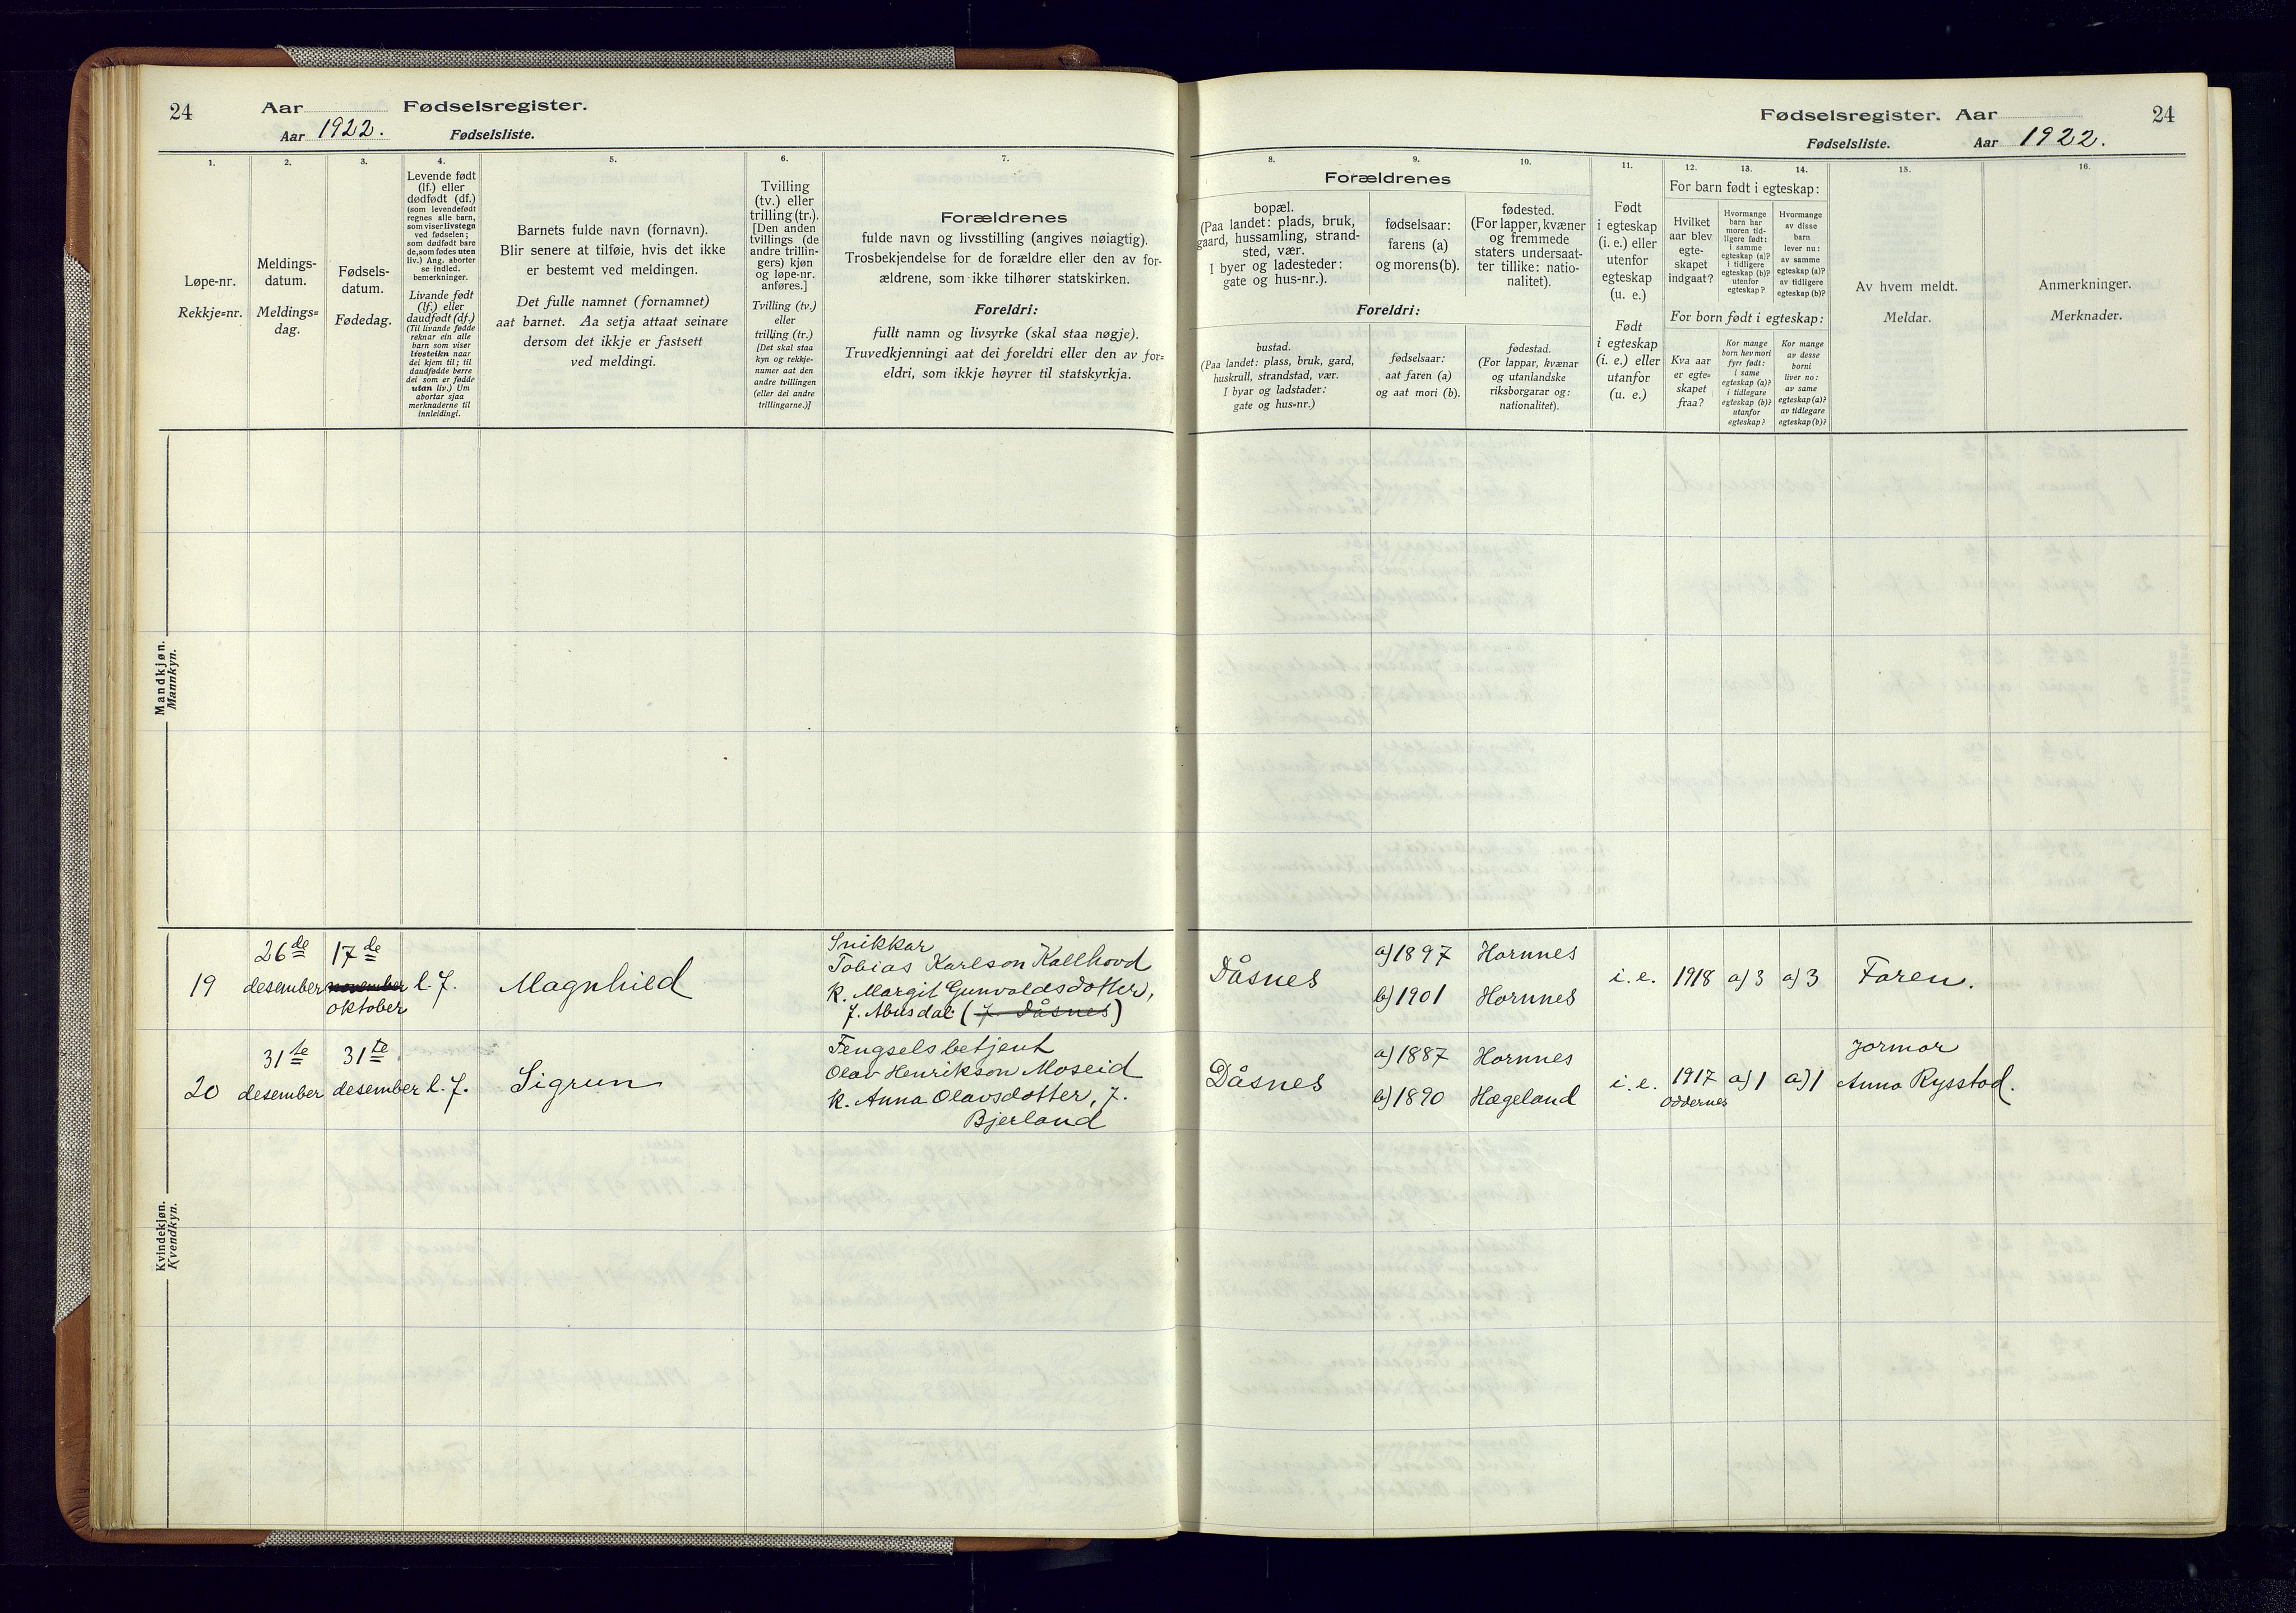 24
Aar
Fødselsregister.
Aar 1922.
Fødselsliste.
1.
2.
3.
4.
5.
6.
7.
Løpe-nr.
Rekkje=nr.
Meldings-
datum.
Meldings=
dag.
Fødsels-
datum.
Fødedag.
Levende født
(lf.) eller
dødfødt (df.)
(som levendefødt
regnes alle barn,
som viser livstegn
ved fødselen;
som dødfødt bare
de, som fødes uten
liv.) Ang. aborter
se indled.
bemerkninger.
Livande født
(lf.) eller
daudfødt (df.)
(Til livande fødde
reknar ein alle
barn som viser
livsteikn naar
dei kjem til; til
daudfødde berre
dei som er fødde
utan liv.) Um
abortar sjaa
merknaderne til
innleidingi.
Barnets fulde navn (fornavn).
Blir senere at tilføie, hvis det ikke
er bestemt ved meldingen.
Det fulle namnet (fornamnet)
aat barnet. Aa setja attaat seinare
dersom det ikkje er fastsett
ved meldingi.
Tvilling
(tv.) eller
trilling (tr.).
[Den anden
tvillings (de
andre trillin-
gers) kjøn
og løpe-nr.
anføres.]
Tvilling (tv.)
eller
trilling (tr.)
[Det skal staa
kyn og rekkje-
numer aat den
andre tvillingen
(eller dei andre
trillingarne.)]
Forældrenes
fulde navn og livsstilling (angives nøiagtig).
Trosbekjendelse for de forældre eller den av for-
ældrene, som ikke tilhører statskirken.
Foreldri:
fullt namn og livsyrke (skal staa nøgje).
Truvedkjenningi aat dei foreldri eller den av for=
eldri, som ikkje høyrer til statskyrkja.
Mandkjøn.
Mannkyn.
19
26de
desember
17de
november
oktober
l. f.
Magnhild
Snikkar
Tobias Karlson Kallhovd
k. Margit Gunvaldsdotter,
f. Abusdal (f. Dåsnes)
20
31te
desember
31te
desember
l. f.
Sigrun
Fengselsbetjent
Olav Henrikson Moseid
k. Anna Olavsdotter, f.
Bjerland
Kvindekjøn.
Kvendkyn.
Fødselsregister. Aar
24
Fødselsliste.
Aar 1922.
8.
9.
10.
11.
12.
13.
14.
15.
16.
Forældrenes
bopæl.
(Paa landet: plads, bruk,
gaard, hussamling, strand-
sted, vær.
I byer og ladesteder:
gate og hus-nr.).
fødselsaar:
farens (a)
og morens (b).
fødested.
(For lapper, kvæner
og fremmede
staters undersaat-
ter tillike: natio-
nalitet).
Foreldri:
bustad.
(Paa landet: plass, bruk, gard,
huskrull, strandstad, vær.
I byar og ladstader:
gate og hus=nr.)
fødselsaar:
aat faren (a)
og aat mori (b).
fødestad.
(For lappar, kvænar
og utanlandske
riksborgarar og:
nationalitet).
Født
i egteskap
(i. e.) eller
utenfor
egteskap
(u. e.)
Født
i egteskap
(i. e.) eller
utanfor
(u. e.)
For barn født i egteskap:
Hvilket
aar blev
egte-
skapet
indgaat?
Hvormange
barn har
moren tid-
ligere født:
i samme
egteskap (a)?
i tidligere
egteskap (b)?
utenfor
egteskap?
Hvormange
av disse
barn
lever nu:
av samme
egteskap (a)?
av tidligere
egteskap (b)?
For born født i egteskap:
Kva aar
er egte=
skapet
fraa?
Kor mange
born hev mori
fyrr født:
i same
egteskap (a)?
i tidlegare
egteskap (b)?
utanfor
egteskap?
Kor mange
av desse
borni
liver no:
av same
egteskap (a)?
av tidlegare
egteskap (b)?
Av hvem meldt.
Meldar.
Anmerkninger.
Merknader.
Dåsnes
a) 1897
b) 1901
Hornnes
Hornnes
i. e.
1918
a) 3
a) 3
Faren.
Dåsnes
a) 1887
b) 1890
Hornnes
Hægeland
i. e.
1917
Oddernes
a) 1
a) 1
Jormor
Anna Rysstad.